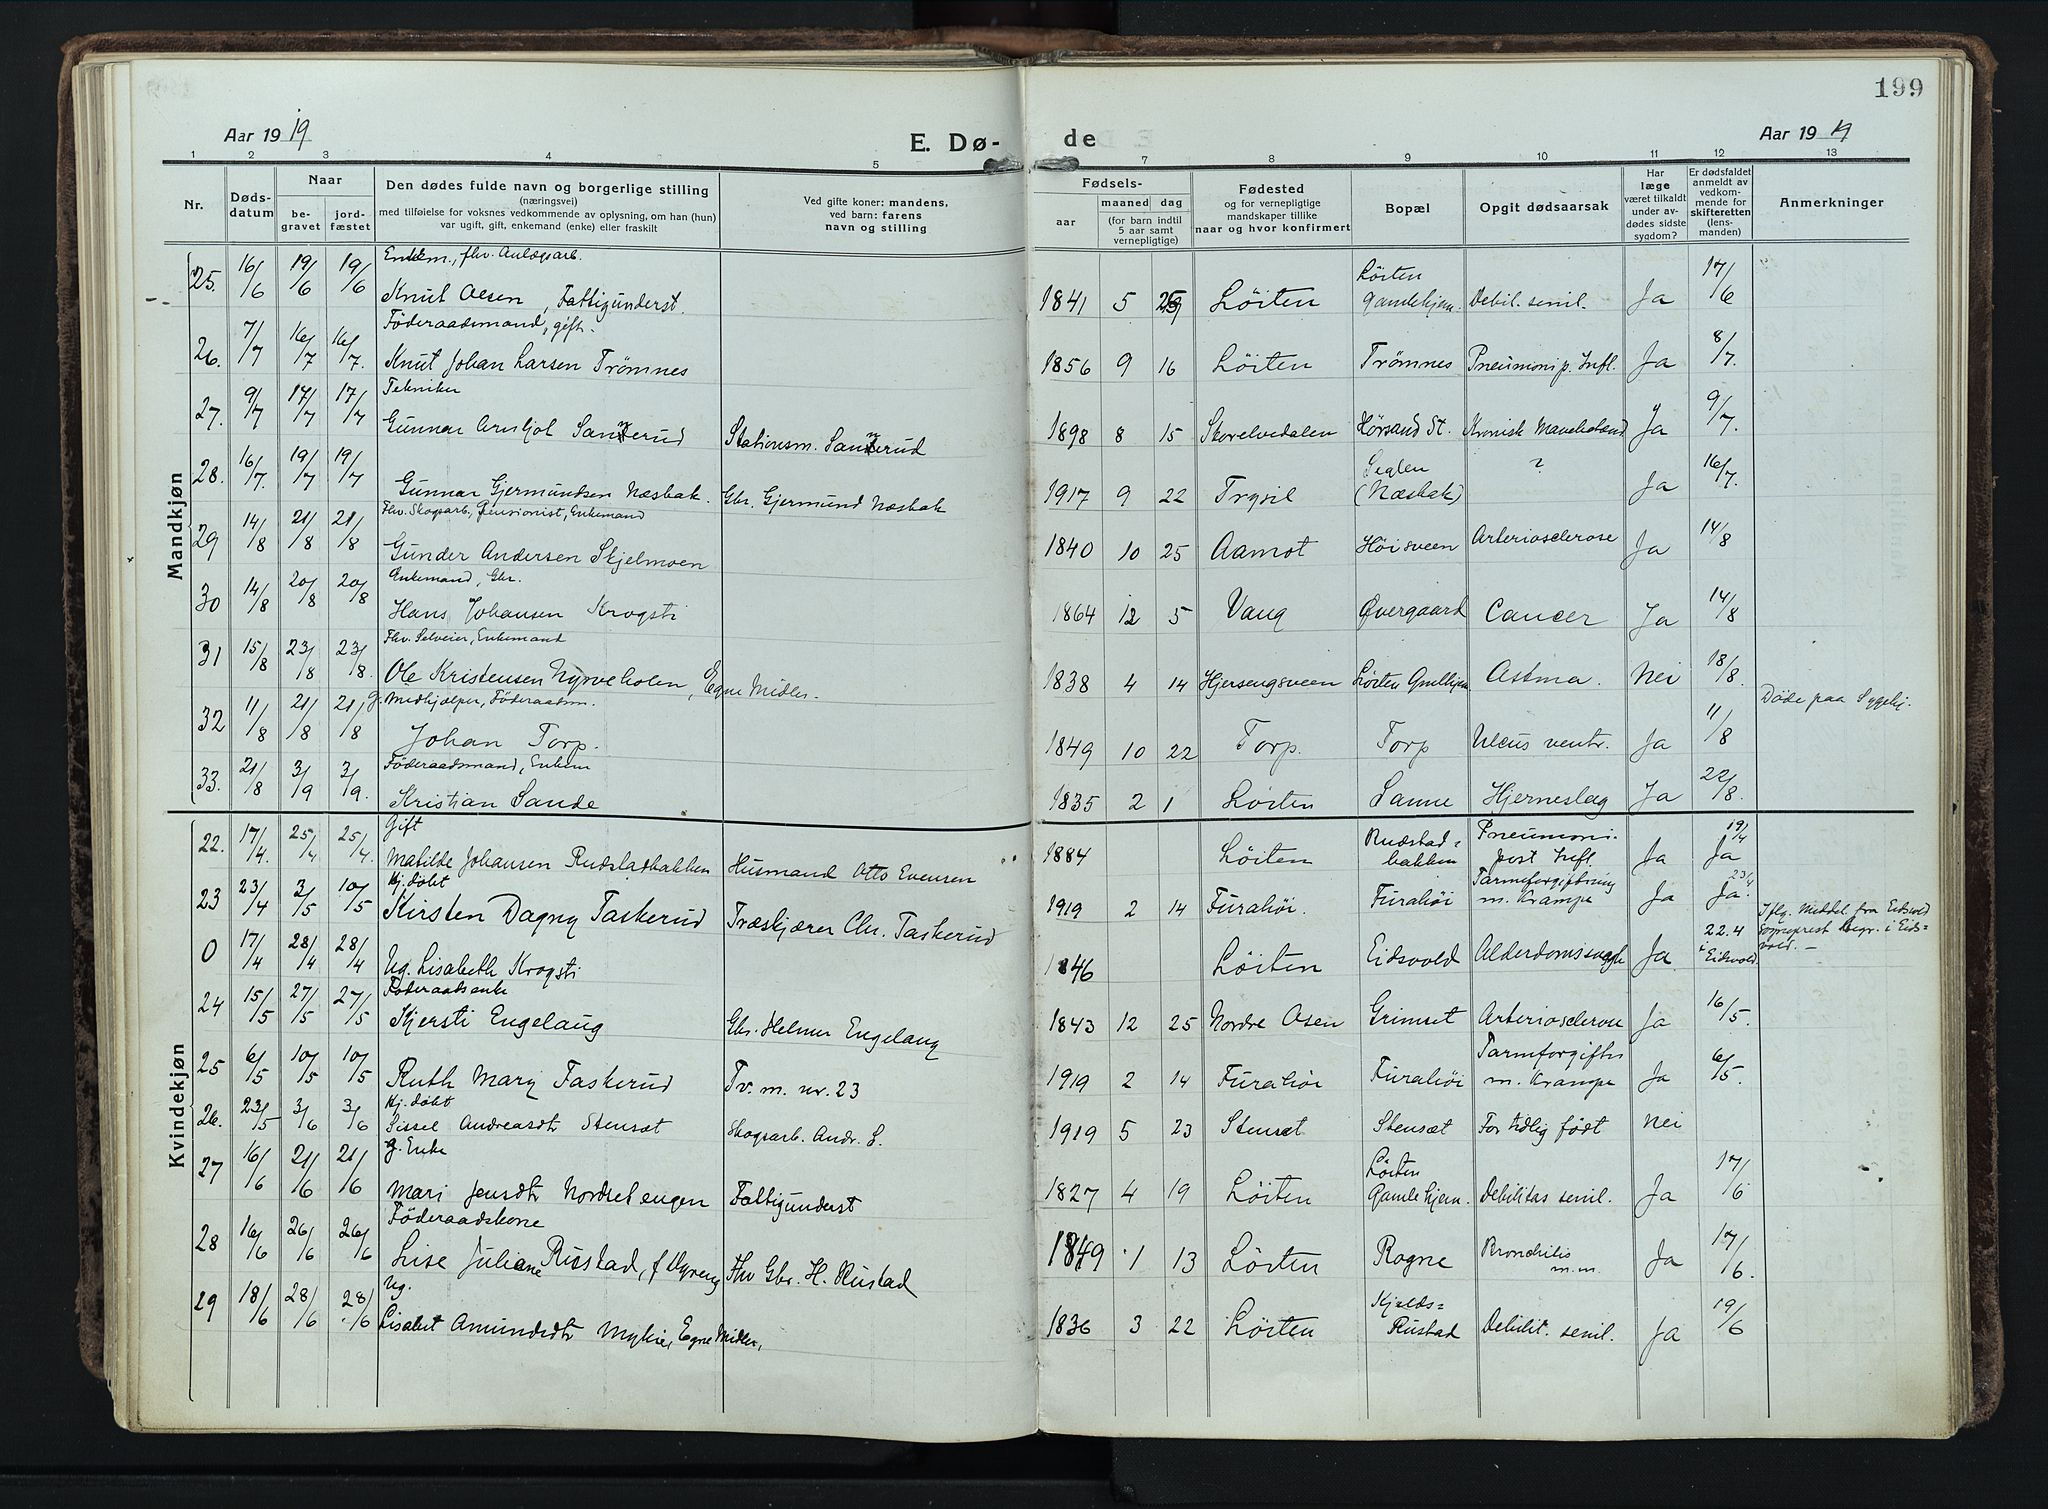 199
Aar 1919
E. Dø-
de
Aar 1919
1 2 3 4 5 7 8 9 10 11 12 13
Nr.
Døds-
datum
Naar
be-
gravet
jord-
fæstet
Den dødes fulde navn og borgerlige stilling
(næringsvei)
med tilføielse for voksnes vedkommende av oplysning, om han (hun)
var ugift, gift, enkemand (enke) eller fraskilt
Ved gifte koner: mandens,
ved barn: farens
navn og stilling
Fødsels-
aar
maaned
dag
(for barn indtil
5 aar samt
vernepligtige)
Fødested
og for vernepligtige
mandskaper tillike
naar og hvor konfirmert
Bopæl
Opgit dødsaarsak
Har
læge
været tilkaldt
under av-
dødes sidste
sygdom?
Er dødsfaldet
anmeldt av
vedkom-
mende for
skifteretten
(lens-
manden)
Anmerkninger
Mandkjøn
Enkem., fhv. Anlægsarb.
25. 16/6 19/6 19/6 Knut Olsen, Fattigunderst. 1841 5 Løiten Løiten Gamlehjem. Debil. senil. Ja 17/6
Føderaadsmand, gift.
26. 7/7 16/7 16/7. Knut Johan Larsen Trømnes 1856 9 16 Løiten Trømnes Pneumoni p. Infl. Ja 8/7.
Tekniker
27. 9/7 17/7 17/7 Gunnar Arnljot Sannerud Stationsm. Sannerud 1898 8 15 Skorelvedalen Hørsand St. Kronisk Ja 9/7.
28. 16/7. 19/7 19/7 Gunnar Gjermundsen Næsbak. Gbr. Gjermund Næsbak 1917 9 22 Trysil Seglen (Næsbak) ? Ja 16/7.
Fhv. Skogsarb., pensionist, Enkemand
29 14/8 21/8 21/8 Gunder Andersen Skjelmoen 1840 10 25 Aamot Høisveen Arteriosclerose Ja 14/8
Enkemand, Gbr.
30 14/8 20/8 20/8 Hans Johansen Krogsti 1864 12 5 Vang Øvergaard Cancer Ja 14/8
Fhv. Selveier, Enkemand
31 15/8 23/8 23/8. Ole Kristensen Nyrveholen, Egne Midler. 1838 4 14 Hjersengsveen Løiten Gmlhjem Astma. Nei 18/8.
g. Medhjælper, Føderaadsm.
32 11/8 21/8 21/8 Johan Torp. 1849 10 22 Torp. Torp Ulcus ventr. Ja 11/8 Døde paa Sygehj.
Føderaadsmand, Enkem
33. 21/8 3/9 3/9. Kristian Sande 1835 2 1 Løiten Sanne Hjerneslag Ja 22/8.
Kvindekjøn
Gift
22. 17/4. 25/4 25/4. Matilde Johansen Rudstadbakken Husmand Otto Evensen 1884 Løiten Rudstad=bakken Pneumoni post Infl. Ja 19/4 Ja
Hj. døbt
23 23/4 3/5 10/5 Kirsten Dagny Taskerud Træskjærer Chr. Taskerud 1919 2 14 Furuhøi. Furuhøi Tarmforgiftning m. Krampe Ja 23/4 Ja.
0 17/4 28/4 28/4 Ug. Lisabeth Krogsti 1846 Løiten Eidsvold Ja. 22.4 i Eidsvold. Iflg. Meddel. fra Eidsvold Sogneprest begr. i Eids=vold. —
Føderaadsenke
24 15/5 27/5 27/5 Kjersti Engelaug Gbr. Helmer Engelaug 1843 12 25 Nordre Osen Grimset Arteriosclerose Ja 16/5.
25 6/5 10/5 10/5 Ruth Mary Taskerud Tv. m. nr. 23 1919 2 14 Furuhøi Furuhøi Tarmforgiftn m. Krampe Ja 6/5.
Hj. døbt
26. 23/5 3/6 3/6 Sissel Andreasdtr Stensæt Skogsarb. Andr. S. 1919 5 23 Stensæt Stensæt For tidlig født Nei
g. Enke
27 16/6 21/6 21/6 Mari Jensdtr Nordsetengen Fattigunderst 1827 4 19 Løiten Løiten Gamlehjem. Debilitas senil. Ja 17/6
Føderaadskone
28 16/6 26/6 26/6 Lise Juliane Rustad, f Dyreng Fhv Gbr. H. Rustad 1849 1 13 Løiten Rogne Bronchitis m.m. Ja 17/6.
Ug.
29 18/6 28/6 28/6 Lisabet Amundsdtr Myhre, Egne Midler. 1836 3 22 Løiten Kjelds=Rustad Debilit. senil. Ja 19/6